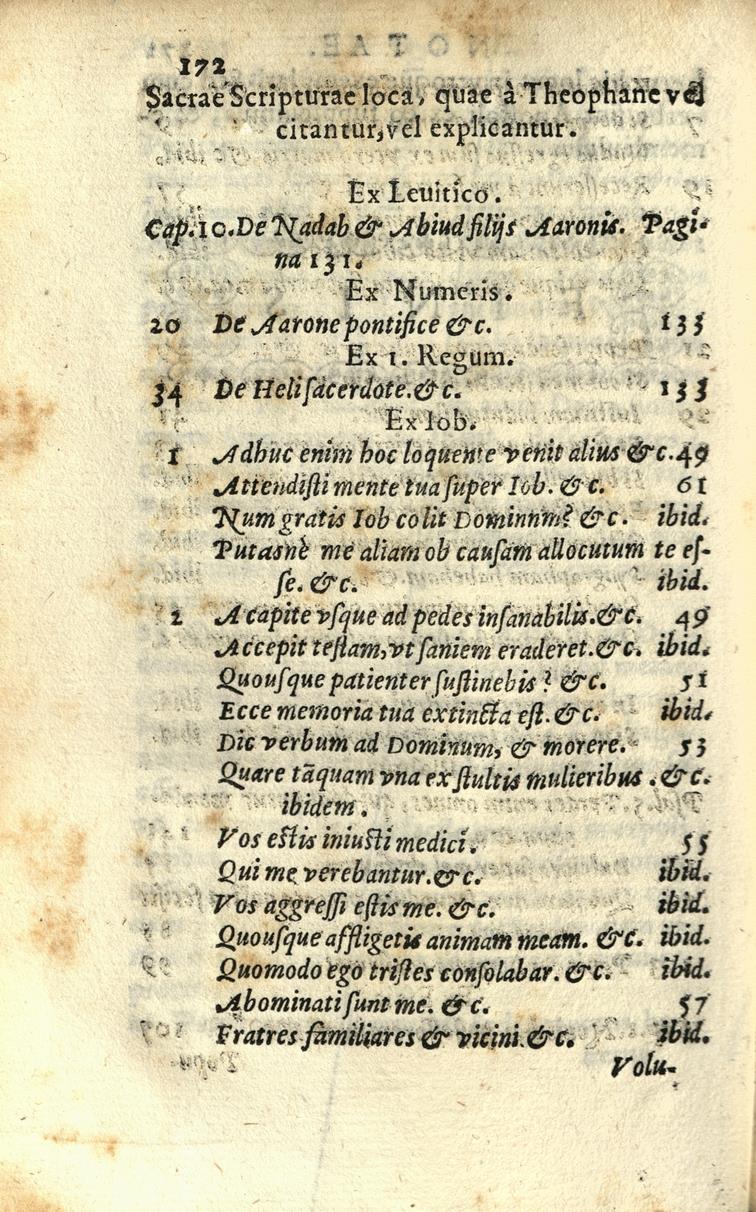 172
Sacrae Scripturae loca, quae à Theophane vel
citantur, vel explicantur.
Ex Leuitico.
Cap. 10. De Nadab & Abiud filijs Aaronis. Pagi-
na 131.
Ex Numeris.
20 De Aarone pontifice &c. 133
Ex 1. Regum.
34 De Heli sacerdote. &c. 133
Ex Iob.
1 Adhuc enim hoc loquente venit alius &c. 49
Attendisti mente tua super Iob. &c. 61
Num gratis Iob colit Dominnm? &c. ibid.
Putasnè me aliam ob causam allocutum te es-
se. &c. ibid.
2 A capite vsque ad pedes insanabilis. &c. 49
Accepit testam, vt saniem eraderet. &c. ibid.
Quousque patienter sustinebis? &c. 51
Ecce memoria tua extincta est. &c. ibid.
Dic verbum ad Dominum, & morere. 53
Quare tãquam vna ex stultis mulieribus. &c.
ibidem.
Vos estis iniusti medici. 55
Qui me verebantur. &c. ibid.
Vos aggressi estis me. &c. ibid.
Quousque affligetis animam meam. &c. ibid.
Quomodo ego tristes consolabar. &c. ibid.
Abominati sunt me. &c. 57
Fratres familiares & vicini. &c. ibid.
Volu-